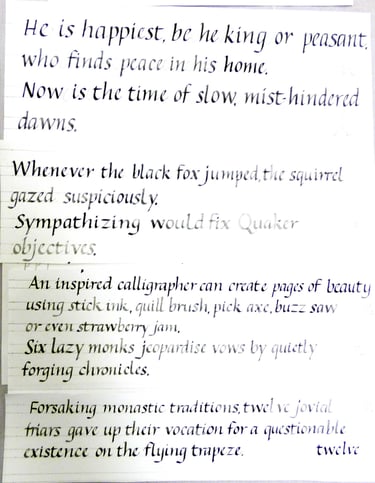 He is happiest, be he king or peasant,
who finds peace in his home.
Now is the time of slow, mist-hindered
dawns.
Whenever the black fox jumped, the squirrel
gazed suspiciously.
Sympathizing would fix Quaker
objectives.
An inspired calligrapher can create pages of beauty
using stick ink, quill brush, pick axe, buzz saw
or even strawberry jam.
Six lazy monks jeopardise vows by quietly
forging chronicles.
Forsaking monastic traditions, twelve jovial
friars gave up their vocation for a questionable
existence on the flying trapeze. twelve